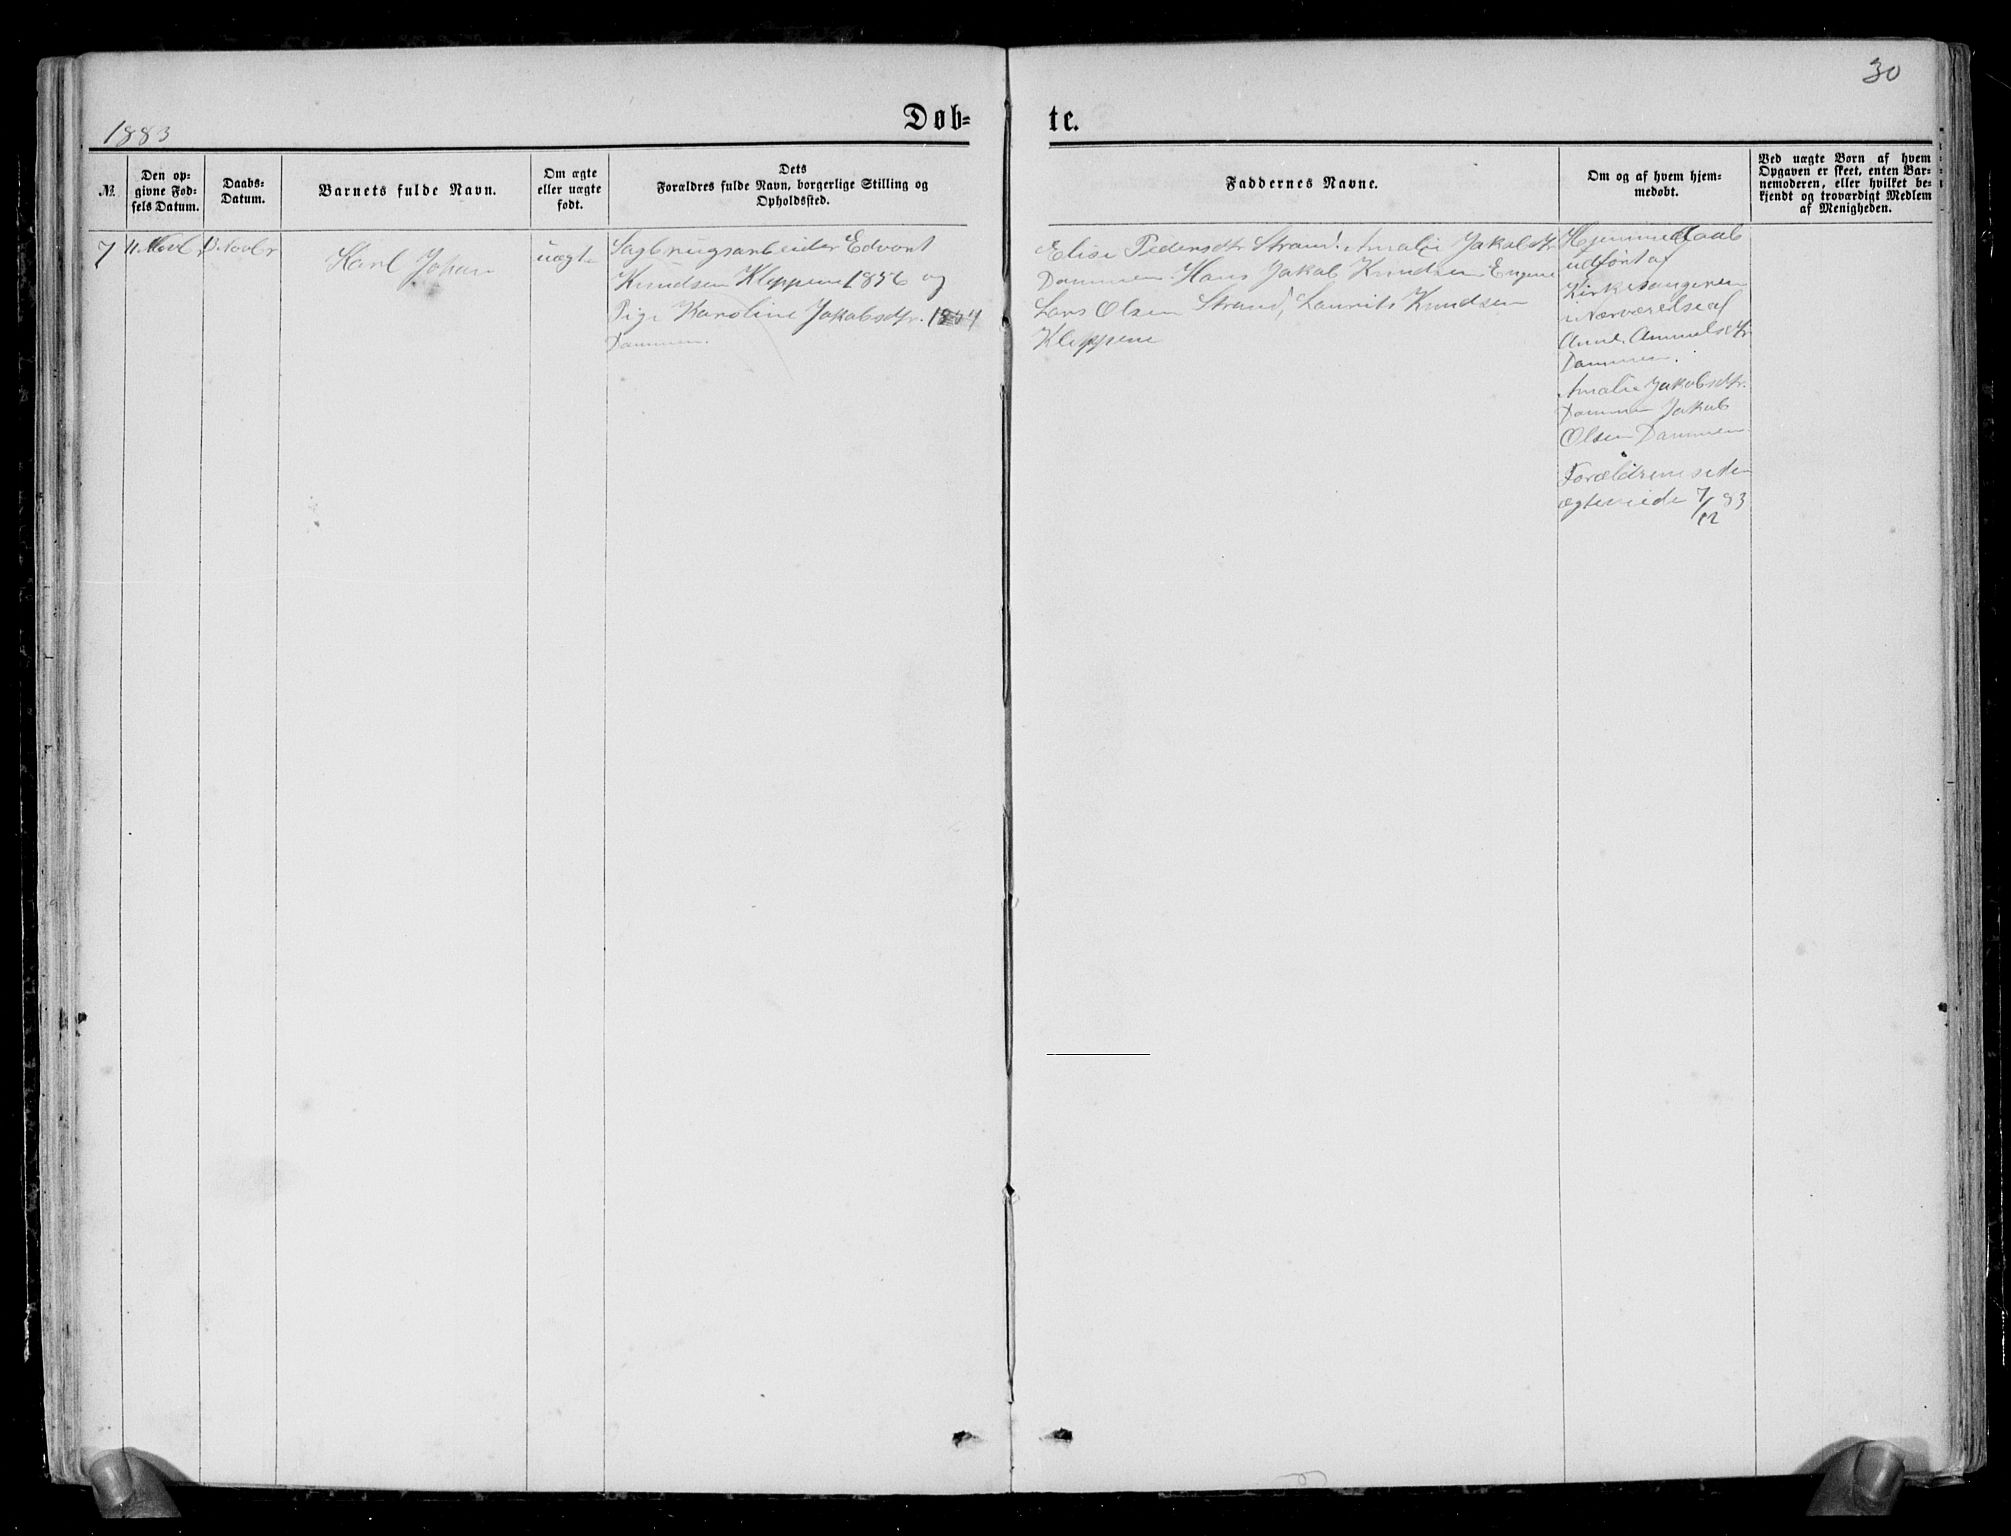 30
1883
Døb=
te.
№
Den op-
givne Fød-
sels Datum.
Daabs-
Datum.
Barnets fulde Navn.
Om ægte
eller uægte
født.
Dets
Forældres fulde Navn, borgerlige Stilling og
Opholdssted.
Faddernes Navne.
Om og af hvem hjem-
medøbt.
Ved uægte Børn af hvem
Opgaven er skeet, enten Bar-
nemoderen, eller hvilket be-
kjendt og troværdigt Medlem
af Menigheden.
7
11 Novbr
13 Novbr
Karl Johan
uægte
Sagbrugsarbeider Edvart
Knudsen Kleppene 1856 og
Pige Karoline Jakobsdtr. 1854
Dammen.
Elise Pedersdtr Strand. Amalie Jakobsdtr
Dammen. Hans Jakob Knudsen Engene
Lars Olsen Strand, Laurits Knudsen
Kleppene
Hjemmedaab
udført af
Kirkesangeren
i Nærværelse af
Anne Ammelsdtr
Dammen.
Amalie Jakobsdtr.
Dammen Jakob
Olsen Dammen
Forældrene siden
ægteviede 7/12 83